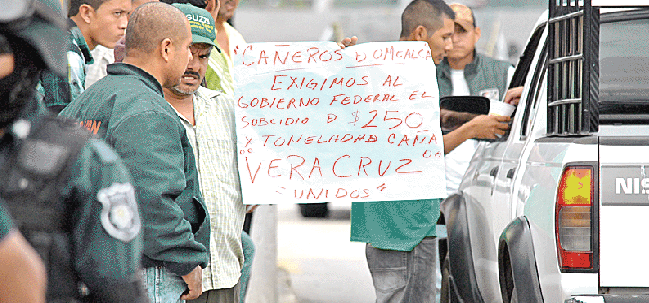 "CAÑEROS D OMEALCA
EXIGIMOS AL
GOBIERNO FEDERAL EL
SUBCIDIO D $250
X TONELADAD CAÑA
DE VERACRUZ DE
"UNIDOS"
NIS